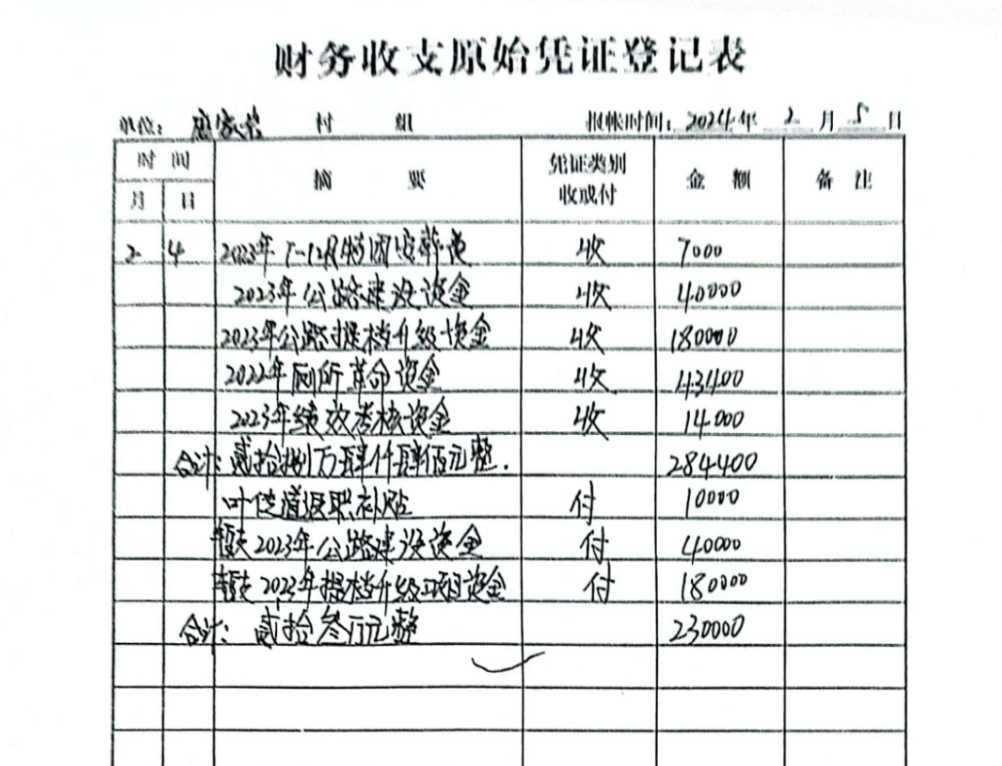 财务收支原始凭证登记表
单位： 村 组 报帐时间：2024年 2月5日
时间 摘要 凭证类别 收或付 金额 备注
月 日
2 4 2023年7-12月特困 收 7000
2023年公路建设资金 收 40000
2023年公路提档升级资金 收 180000
2022年厕所革命资金 收 43400
2023年绩效考核资金 收 14000
合计：贰拾捌万肆仟肆佰元整. 284400
叶 道退职补贴 付 10000
暂支2023年公路建设资金 付 40000
暂支2023年提档升级项目资金 付 180000
合计：贰拾叁万元整 230000